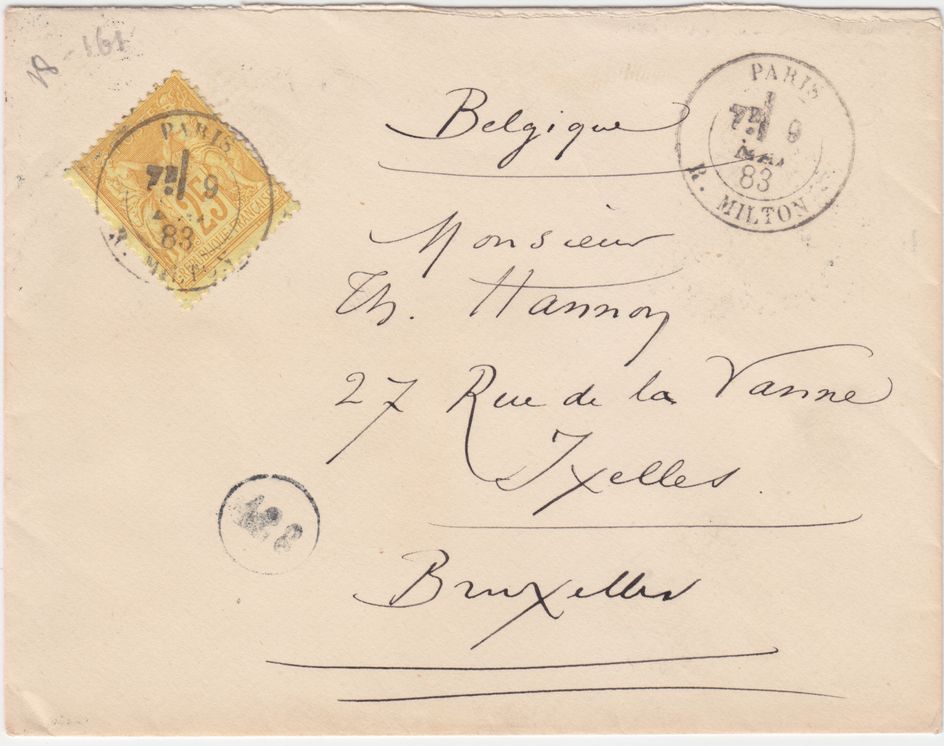 18-161
PARIS
9
83
R. MILTON
25
REPUBLIQUE FRANCAISE
PARIS
9
83
R. MILTON
Belgique
Monsieur
Th. Hannon
27 Rue de la Vanne
Ixelles
Bruxelles